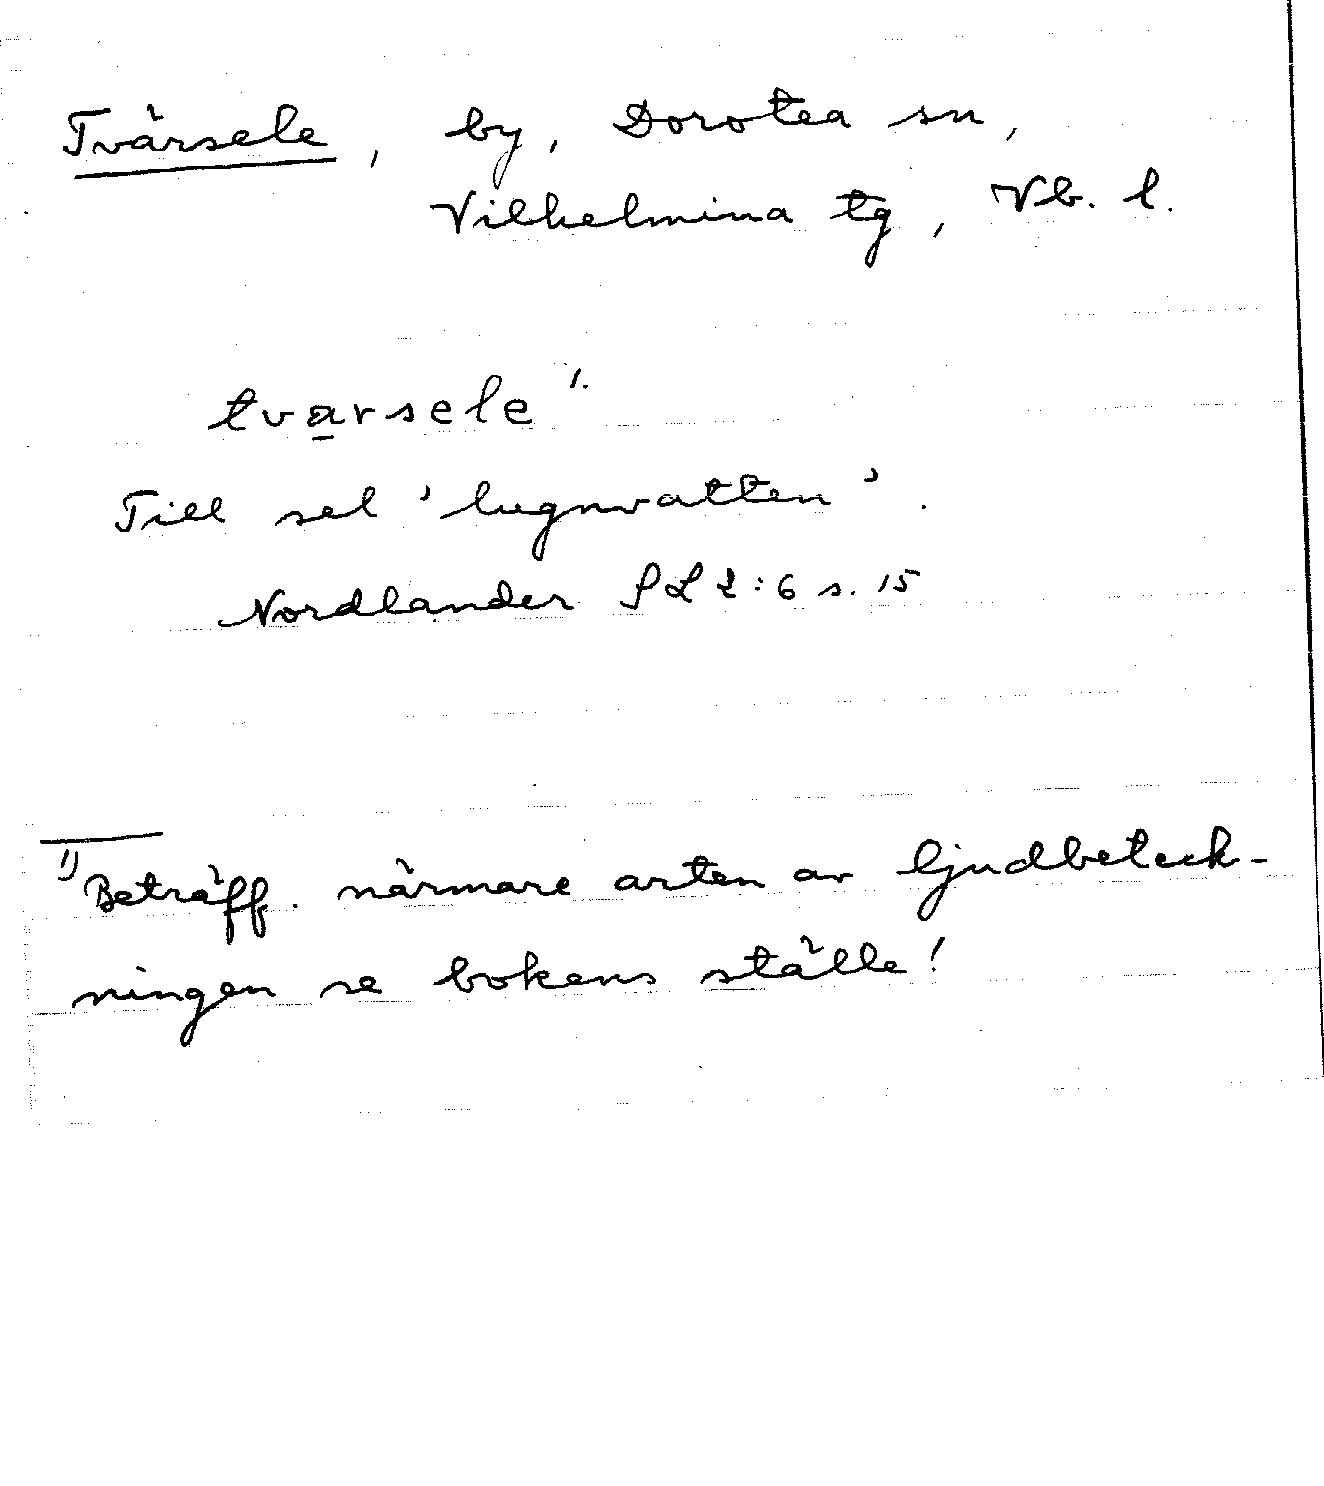 Tvärsele, by, Dorotea sn,
Vilhelmina tg, Vb. l.
tvarsele 1.
Till sel 'lugnvatten'.
Nordlander SL 2:6 s. 15
1) Beträff. närmare arten av ljudbeteck-
ningen se bokens ställe!